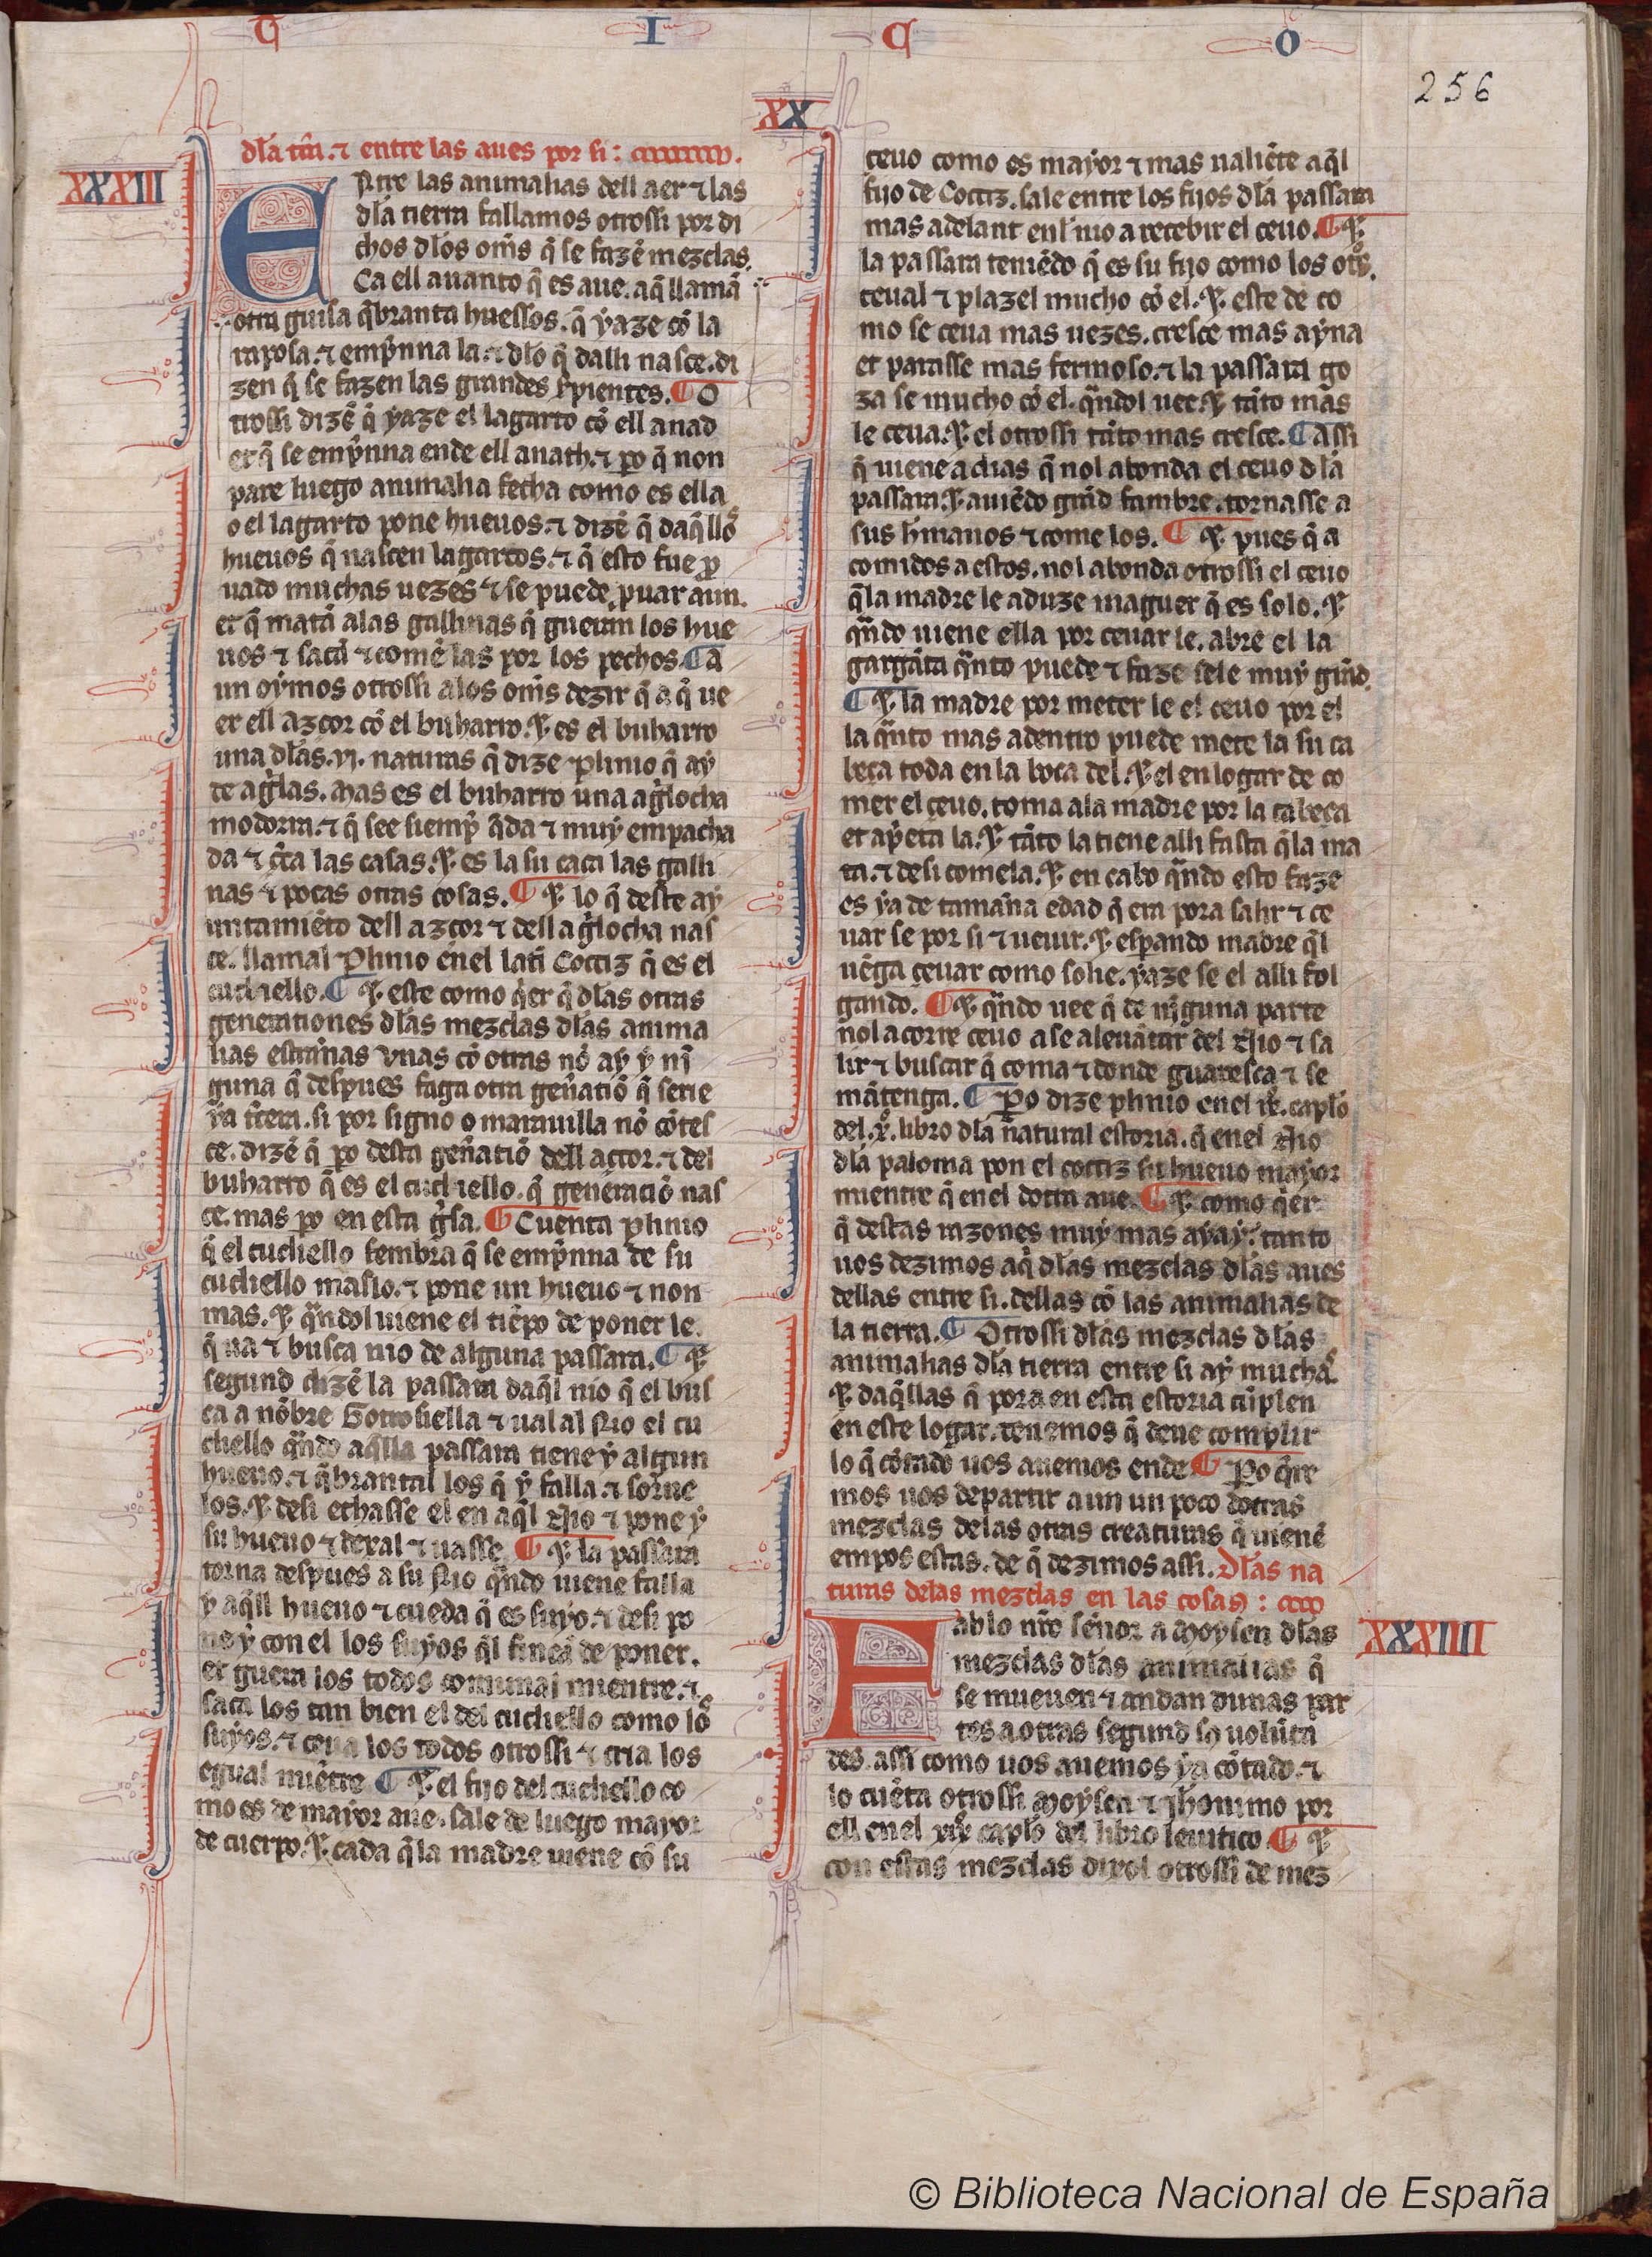 T I C O
256
XX
dl̃a tr̃ra. ⁊ entre las aues por si:
XXXIII
ENtre las animalias dell aer ⁊ las
dl̃a tierra fallamos otrossi por di
chos dl̃os om̃s q̃ se fazẽ mezclas.
Ca ell auanto q̃ es aue. a q̃ llamã
otra guisa q̃branta huessos. q̃ yaze cõ la
raposa. ⁊ emprenna la. ⁊ dl̃o q̃ dalli nasce. di
zen q̃ se fazen las grandes s̃pientes. ¶ O
trossi dizẽ q̃ yaze el lagarto cõ ell anad
er q̃ se emprenna ende ell anath. ⁊ po q̃ non
pare luego animalia fecha como es ella
o el lagarto pone hueuos. ⁊ dizẽ q̃ daq̃llos
hueuos q̃ nascen lagartos. ⁊ q̃ esto fue p
uado muchas uezes ⁊ se puede puar aun.
et q̃ matã alas gallinas q̃ gueran los hue
uos ⁊ sacã ⁊ comẽ las por los pechos. ¶ A
un oymos otrossi alos om̃s dezir q̃ a q̃ ue
er ell azcor cõ el buharro. ⁊ es el buharro
una dl̃as .vj. naturas q̃ dize plinio q̃ ay
de agl̃as. Mas es el buharro una aglocha
modorra. ⁊ q̃ see siemp q̃da ⁊ muy empacha
da ⁊ cãta las casas. ⁊ es la su caça las galli
nas ⁊ pocas otras cosas. ¶ ⁊ lo q̃ deste ay
untamiẽto dell azcor ⁊ dell aglocha nas
ce. llamal Plinio en el latĩ Cocciz q̃ es el
cuchiello. ¶ ⁊ este como q̃er q̃ dl̃as otras
generationes dl̃as mezclas dl̃as anima
lias estrãnas unas cõ otras nõ ay y nĩ
guna q̃ despues faga otra gen̄atiõ q̃ serie
ya t̃cera. si por signo o marauilla nõ cõtes
ce. dizẽ q̃ po desta gen̄atiõ dell actor. ⁊ del
buharro q̃ es el cuchiello. q̃ generaciõ nas
ce. mas po en esta gĩsa. ¶ Cuenta plinio
q̃ el cuchiello fembra q̃ se emprenna de su
cuchiello maslo. ⁊ pone un hueuo ⁊ non
mas. ⁊ q̃ndol uiene el tiẽpo de poner le.
q̃ ua ⁊ busca nio de alguna passara. ¶ ⁊
segund dizẽ la passara daq̃l nio q̃ el bus
ca a nõbre Gotrobiella ⁊ ual al nio el cu
chello q̃ndo aq̃lla passara tiene y algun
hueuo. ⁊ q̃brantal los q̃ y falla ⁊ sorue
los. ⁊ desi echasse el en aq̃l nio ⁊ pone y
su hueuo ⁊ dexal ⁊ uasse. ¶ ⁊ la passara
torna despues a su nio q̃ndo uiene falla
y aq̃ll hueuo ⁊ cueda q̃ es suyo. ⁊ desi po
ne y con el los suyos q̃l fincã de poner.
et guera los todos comunal mientre. ⁊
saca los tan bien el del cuchello como los
suyos. ⁊ ceua los todos otrossi ⁊ cria los
egual miẽtre ¶ ⁊ el fijo del cuchello co
mo es de mayor aue. sale de luego mayor
de cuerpo. ⁊ cada q̃ la madre uiene cõ su
ceuo como es mayor ⁊ mas ualiẽte aq̃l
fijo de Coctiz. sale entre los fijos dl̃a passara
mas adelant enl nio a recebir el ceuo. ¶ ⁊
la passara teniẽdo q̃ es su fijo como los otros.
ceual ⁊ plazel mucho cõ el. ⁊ este de co
mo se ceua mas uezes. cresce mas ayna
et parasse mas fermoso. ⁊ la passara go
za se mucho cõ el. q̃ndol uee. ⁊ tãto mas
le ceua. ⁊ el otrossi tãto mas cresce. ¶ Assi
q̃ uiene a dias q̃ nol abonda el ceuo dl̃a
passara. ⁊ auiẽdo grãd fambre. tornasse a
sus h̃manos ⁊ come los. ¶ ⁊ pues q̃ a
comidos a estos. nol abonda otrossi el ceuo
q̃ la madre le aduze maguer q̃ es solo. ⁊
q̃ndo uiene ella por ceuar le. abre el la
gargãta q̃nto puede ⁊ faze sele muy grãd.
¶ ⁊ la madre por meter le el ceuo por el
la q̃nto mas adentro puede mete la su ca
beça toda en la boca del. ⁊ el en logar de co
mer el ceuo. toma ala madre por la cabeça
et aprieta la. ⁊ tãto la tiene alli fasta q̃ la ma
ta. ⁊ desi comela. ⁊ en cabo q̃ndo esto faze
es ya de tamãna edad q̃ era pora salir ⁊ ce
uar se por si ⁊ ueuir. ⁊ esperando madre q̃l
uẽga ceuar como solie. yaze se el alli fol
gando. ¶ ⁊ q̃ndo uee q̃ de nĩguna parte
nol acorre ceuo a se aleuãtar del nio ⁊ sa
lir ⁊ buscar q̃ coma ⁊ donde guaresca ⁊ se
mãtenga. ¶ Po dize plinio en el ix. caplo
del .x. libro dl̃a natural estoria. q̃ en el nio
dl̃a paloma pon el coctiz su hueuo mayor
mientre q̃ en el dotra aue. ¶ ⁊ como q̃er
q̃ destas razones muy mas aya y. tanto
uos dezimos aq̃ dl̃as mezclas dl̃as aues
dellas entre si. dellas cõ las animalias de
la tierra. ¶ Otrossi dl̃as mezclas dl̃as
animalias dl̃a tierra entre si ay muchas.
⁊ daq̃llas q̃ pora en esta estoria cũplen
en este logar. tenemos q̃ deue complir
lo q̃ cõtado uos auemos ende ¶ Po q̃re
mos uos departir aun un poco dotras
mezclas delas otras creaturas q̃ uienẽ
empos estas. de q̃ dezimos assi. Dl̃as na
turas delas mezclas en las cosas:
XXXIIII
FAblo nr̃o sẽnor a Moysen dl̃as
mezclas dl̃as animalias q̃
se mueuen ⁊ andan dunas par
tes a otras segund sus uolũta
des. assi como uos auemos ya cõtado. ⁊
lo cuẽta otrossi Moysen ⁊ Jheronimo por
ell en el xix caplo del libro leuitico. ¶ ⁊
con estas mezclas dixol otrossi de mez
© Biblioteca Nacional de España